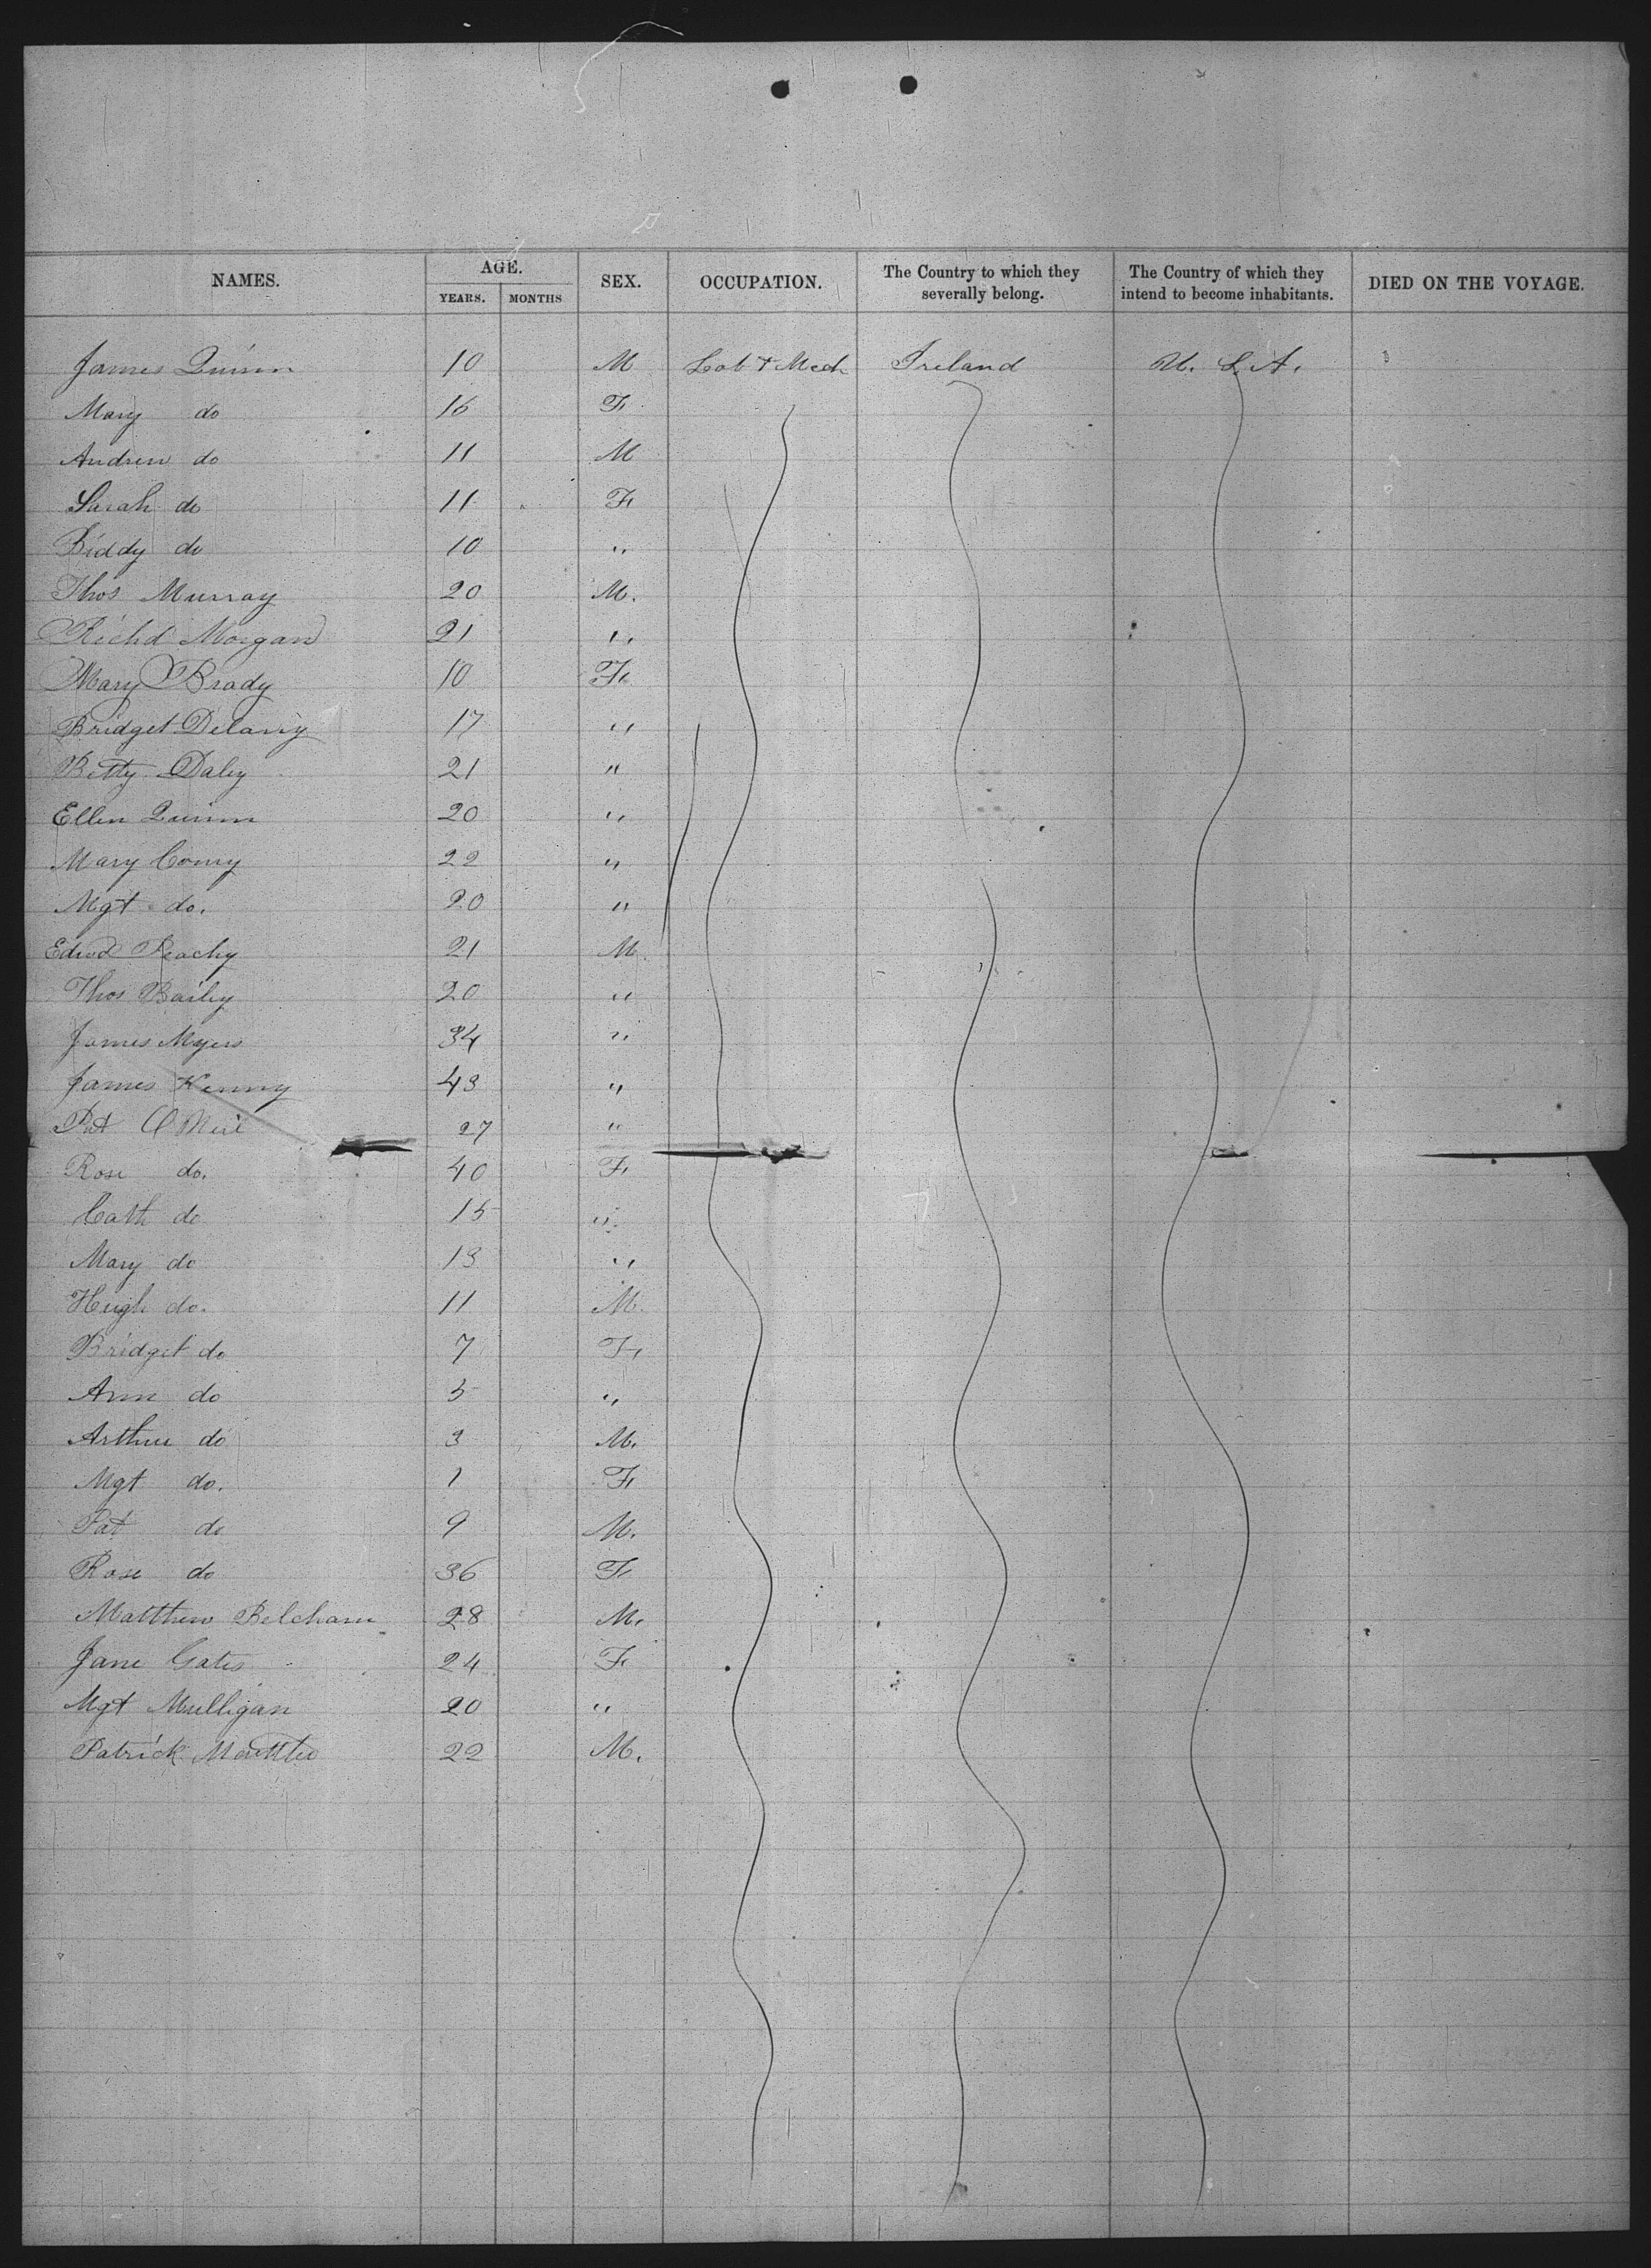 NAMES. AGE. SEX. OCCUPATION. The Country to which they severally belong. The Country of which they intend to become inhabitants. DIED ON THE VOYAGE.
YEARS. MONTHS
James Quinn 10 M Lab & Mech Ireland U. S. A.
Mary do 16 F
Andrew do 11 M
Sarah do 11 F
Biddy do 10 "
Thos Murray 20 M.
Richd Morgan 21 "
Mary Brady 10 F
Bridget Delany 17 "
Betty Daley 21 "
Ellen Quinn 20 "
Mary Conry 22 "
Mgt do. 20 "
Edwd Peachy 21 M
Thos Bailey 20 "
James Myers 34 "
James Kenny 43 "
Pat O Neil 27 "
Rose do. 40 F
Cath do 15 "
Mary do 13 "
Hugh do. 11 M.
Bridget do 7 F
Ann do 5 "
Arthur do 3 M.
Mgt do. 1 F
Pat do 9 M.
Rose do 36 F
Matthew Belcham 28 M.
Jane Gates 24 F
Mgt Mulligan 20 "
Patrick 22 M.